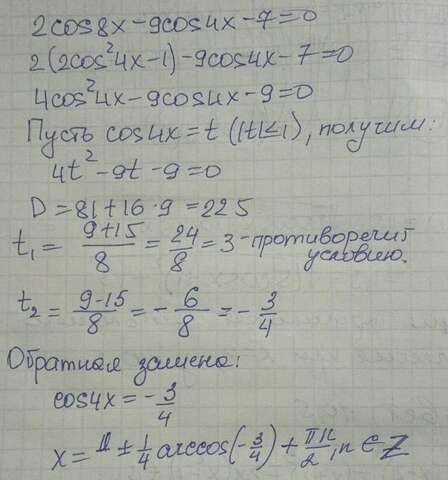 2cos8x-9cos4x-7=0
2(2cos²4x-1)-9cos4x-7=0
4cos²4x-9cos4x-9=0
Пусть cos4x=t (|t|≤1), получим:
4t²-9t-9=0
D=81+16·9=225
t₁= (9+15)/8 = 24/8 = 3 - противоречит условию.
t₂= (9-15)/8 = -6/8 = -3/4
Обратная замена:
cos4x=-3/4
x= ± 1/4 arccos(-3/4) + πn/2, n∈Z